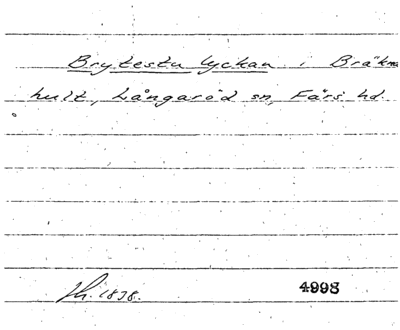 Brytestu lyckan i Bräkne
hult, Långaröd sn, Färs hd.
1838.
4998